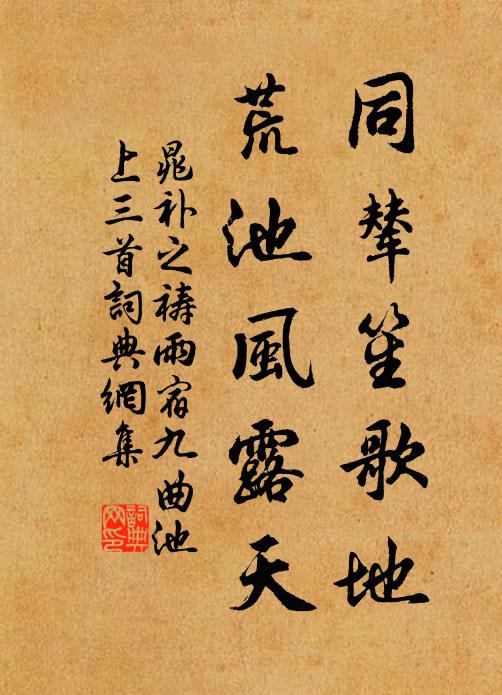 同輦笙歌地
荒池風露天
晁补之禱雨宿九曲池
上三首詞典網集
詞典
网印